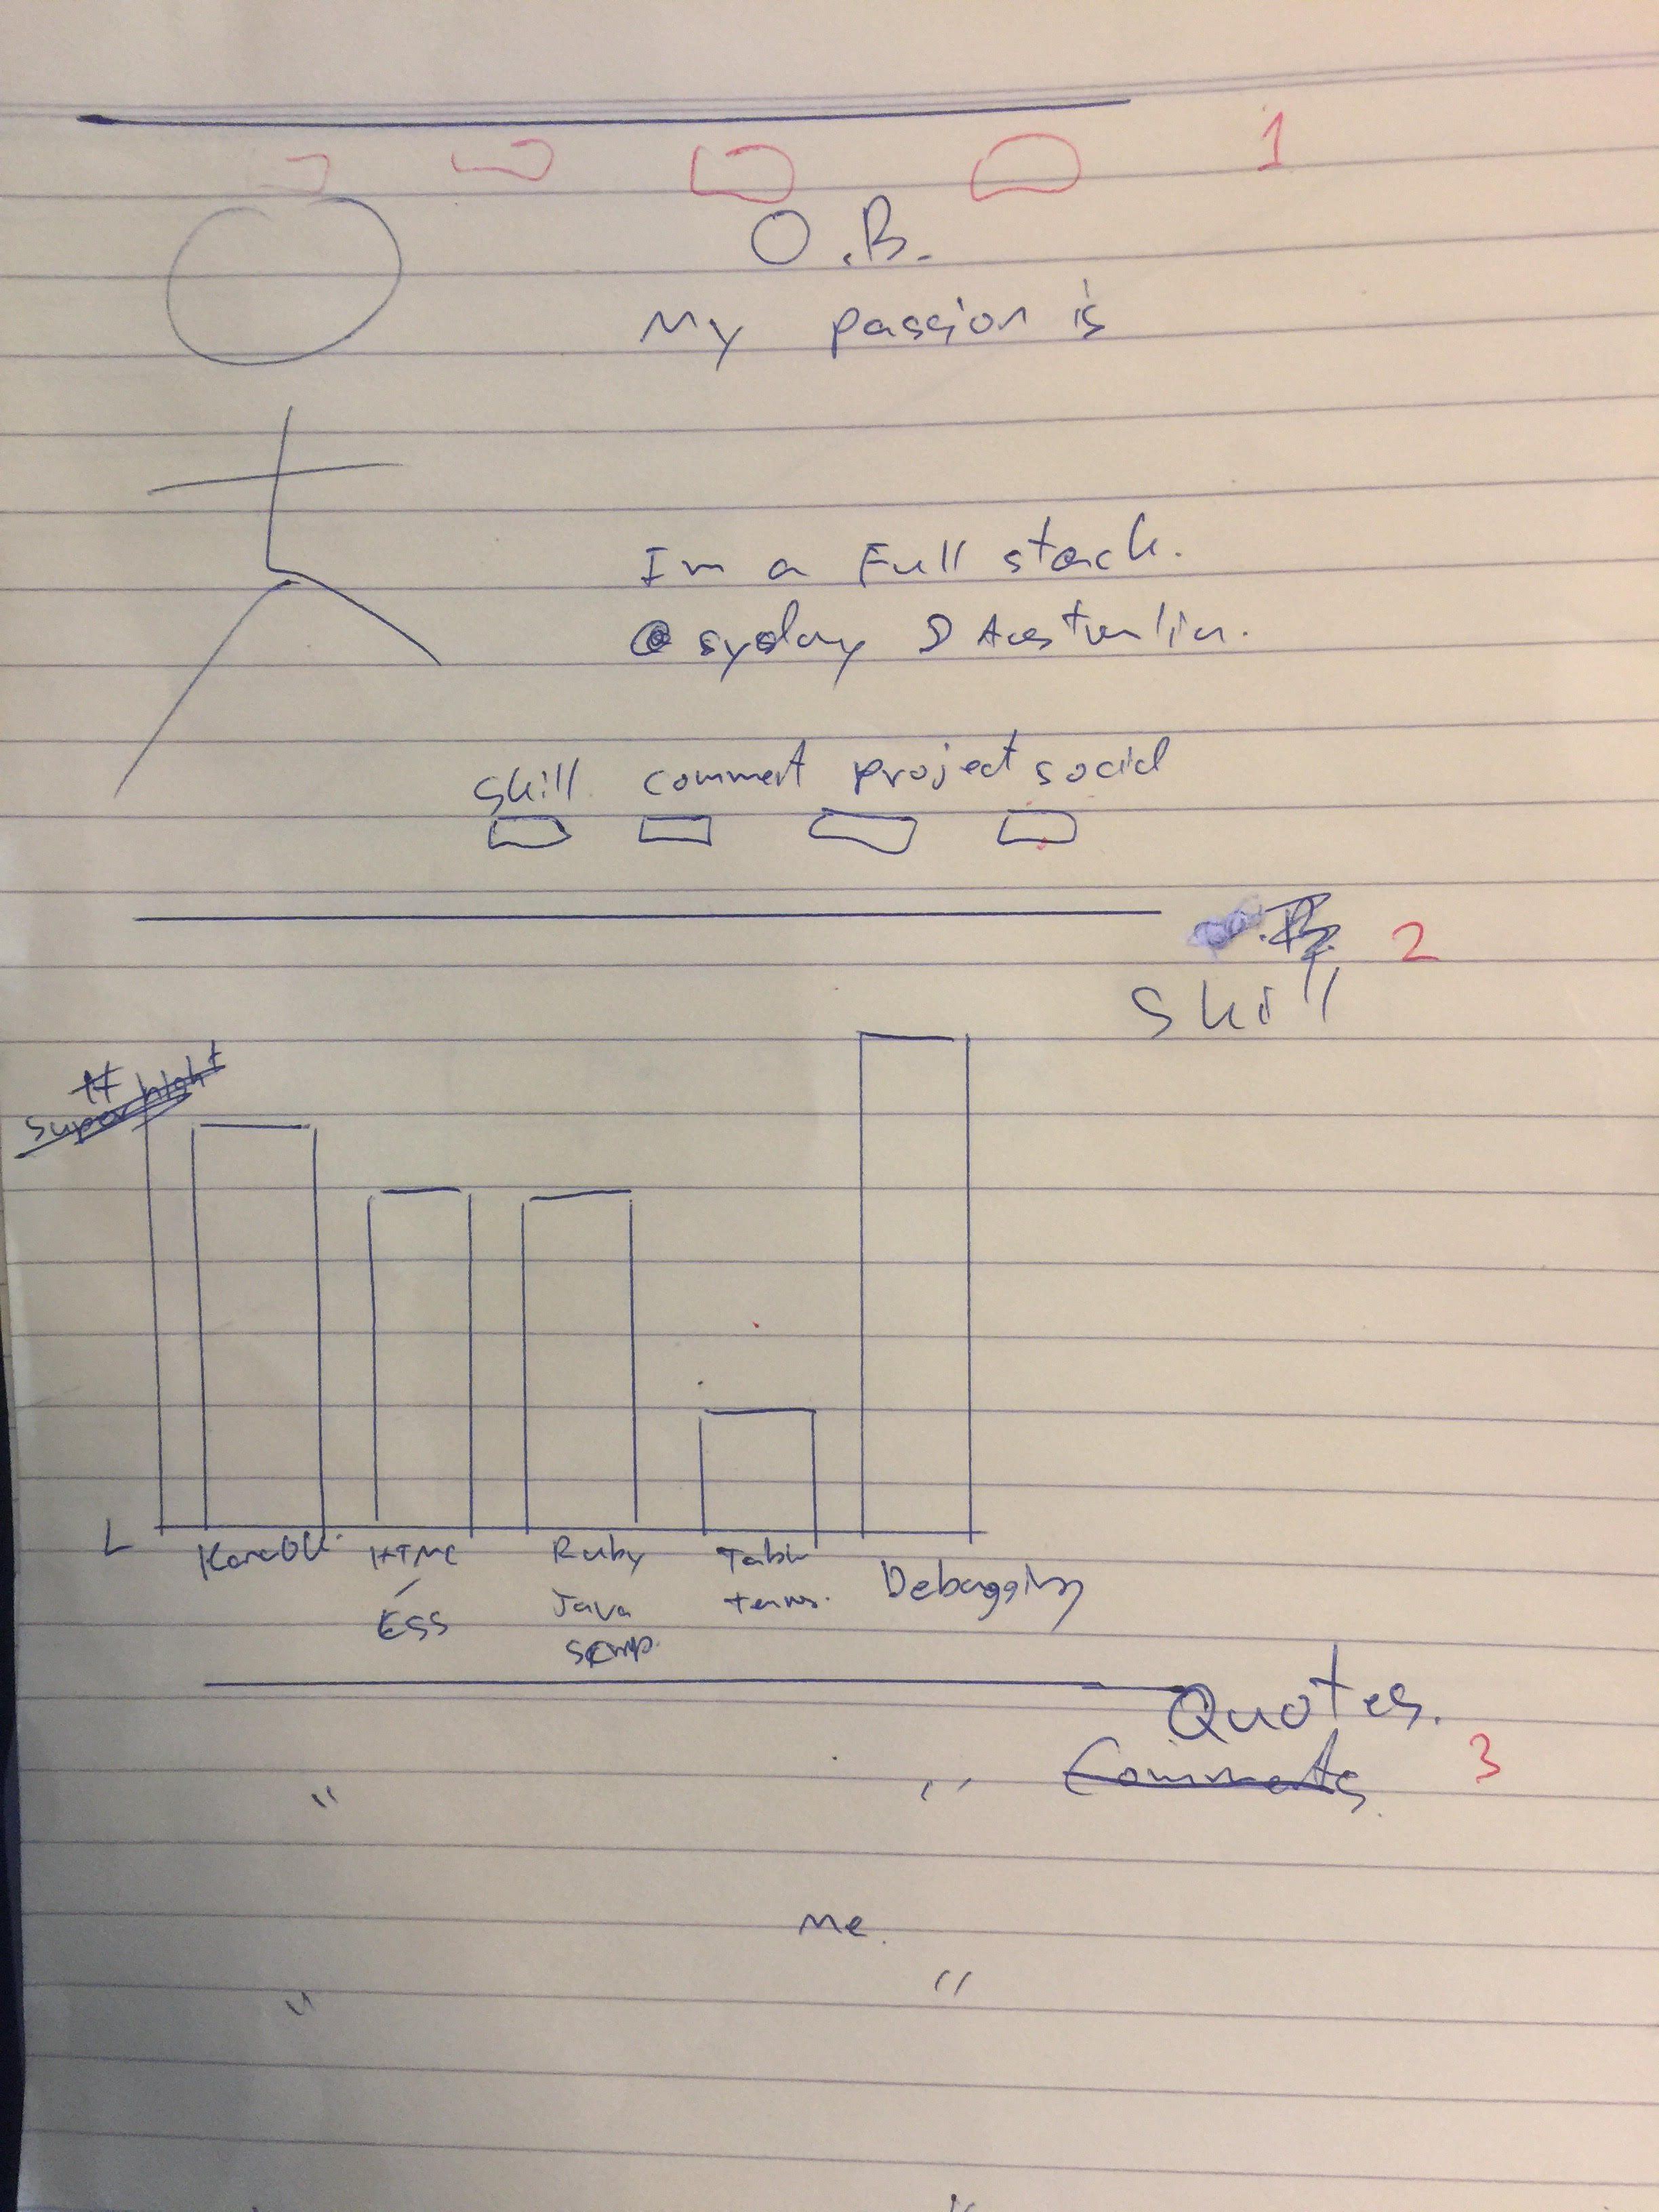 1
O.B.
My passion is
Im a Full stack.
@ sydney Australia.
Skill comment project social
2
Skill
H
super hight
L
HTML
Ruby
Java
Debugging
Quotes.
Comments
3
" "
me.
" "